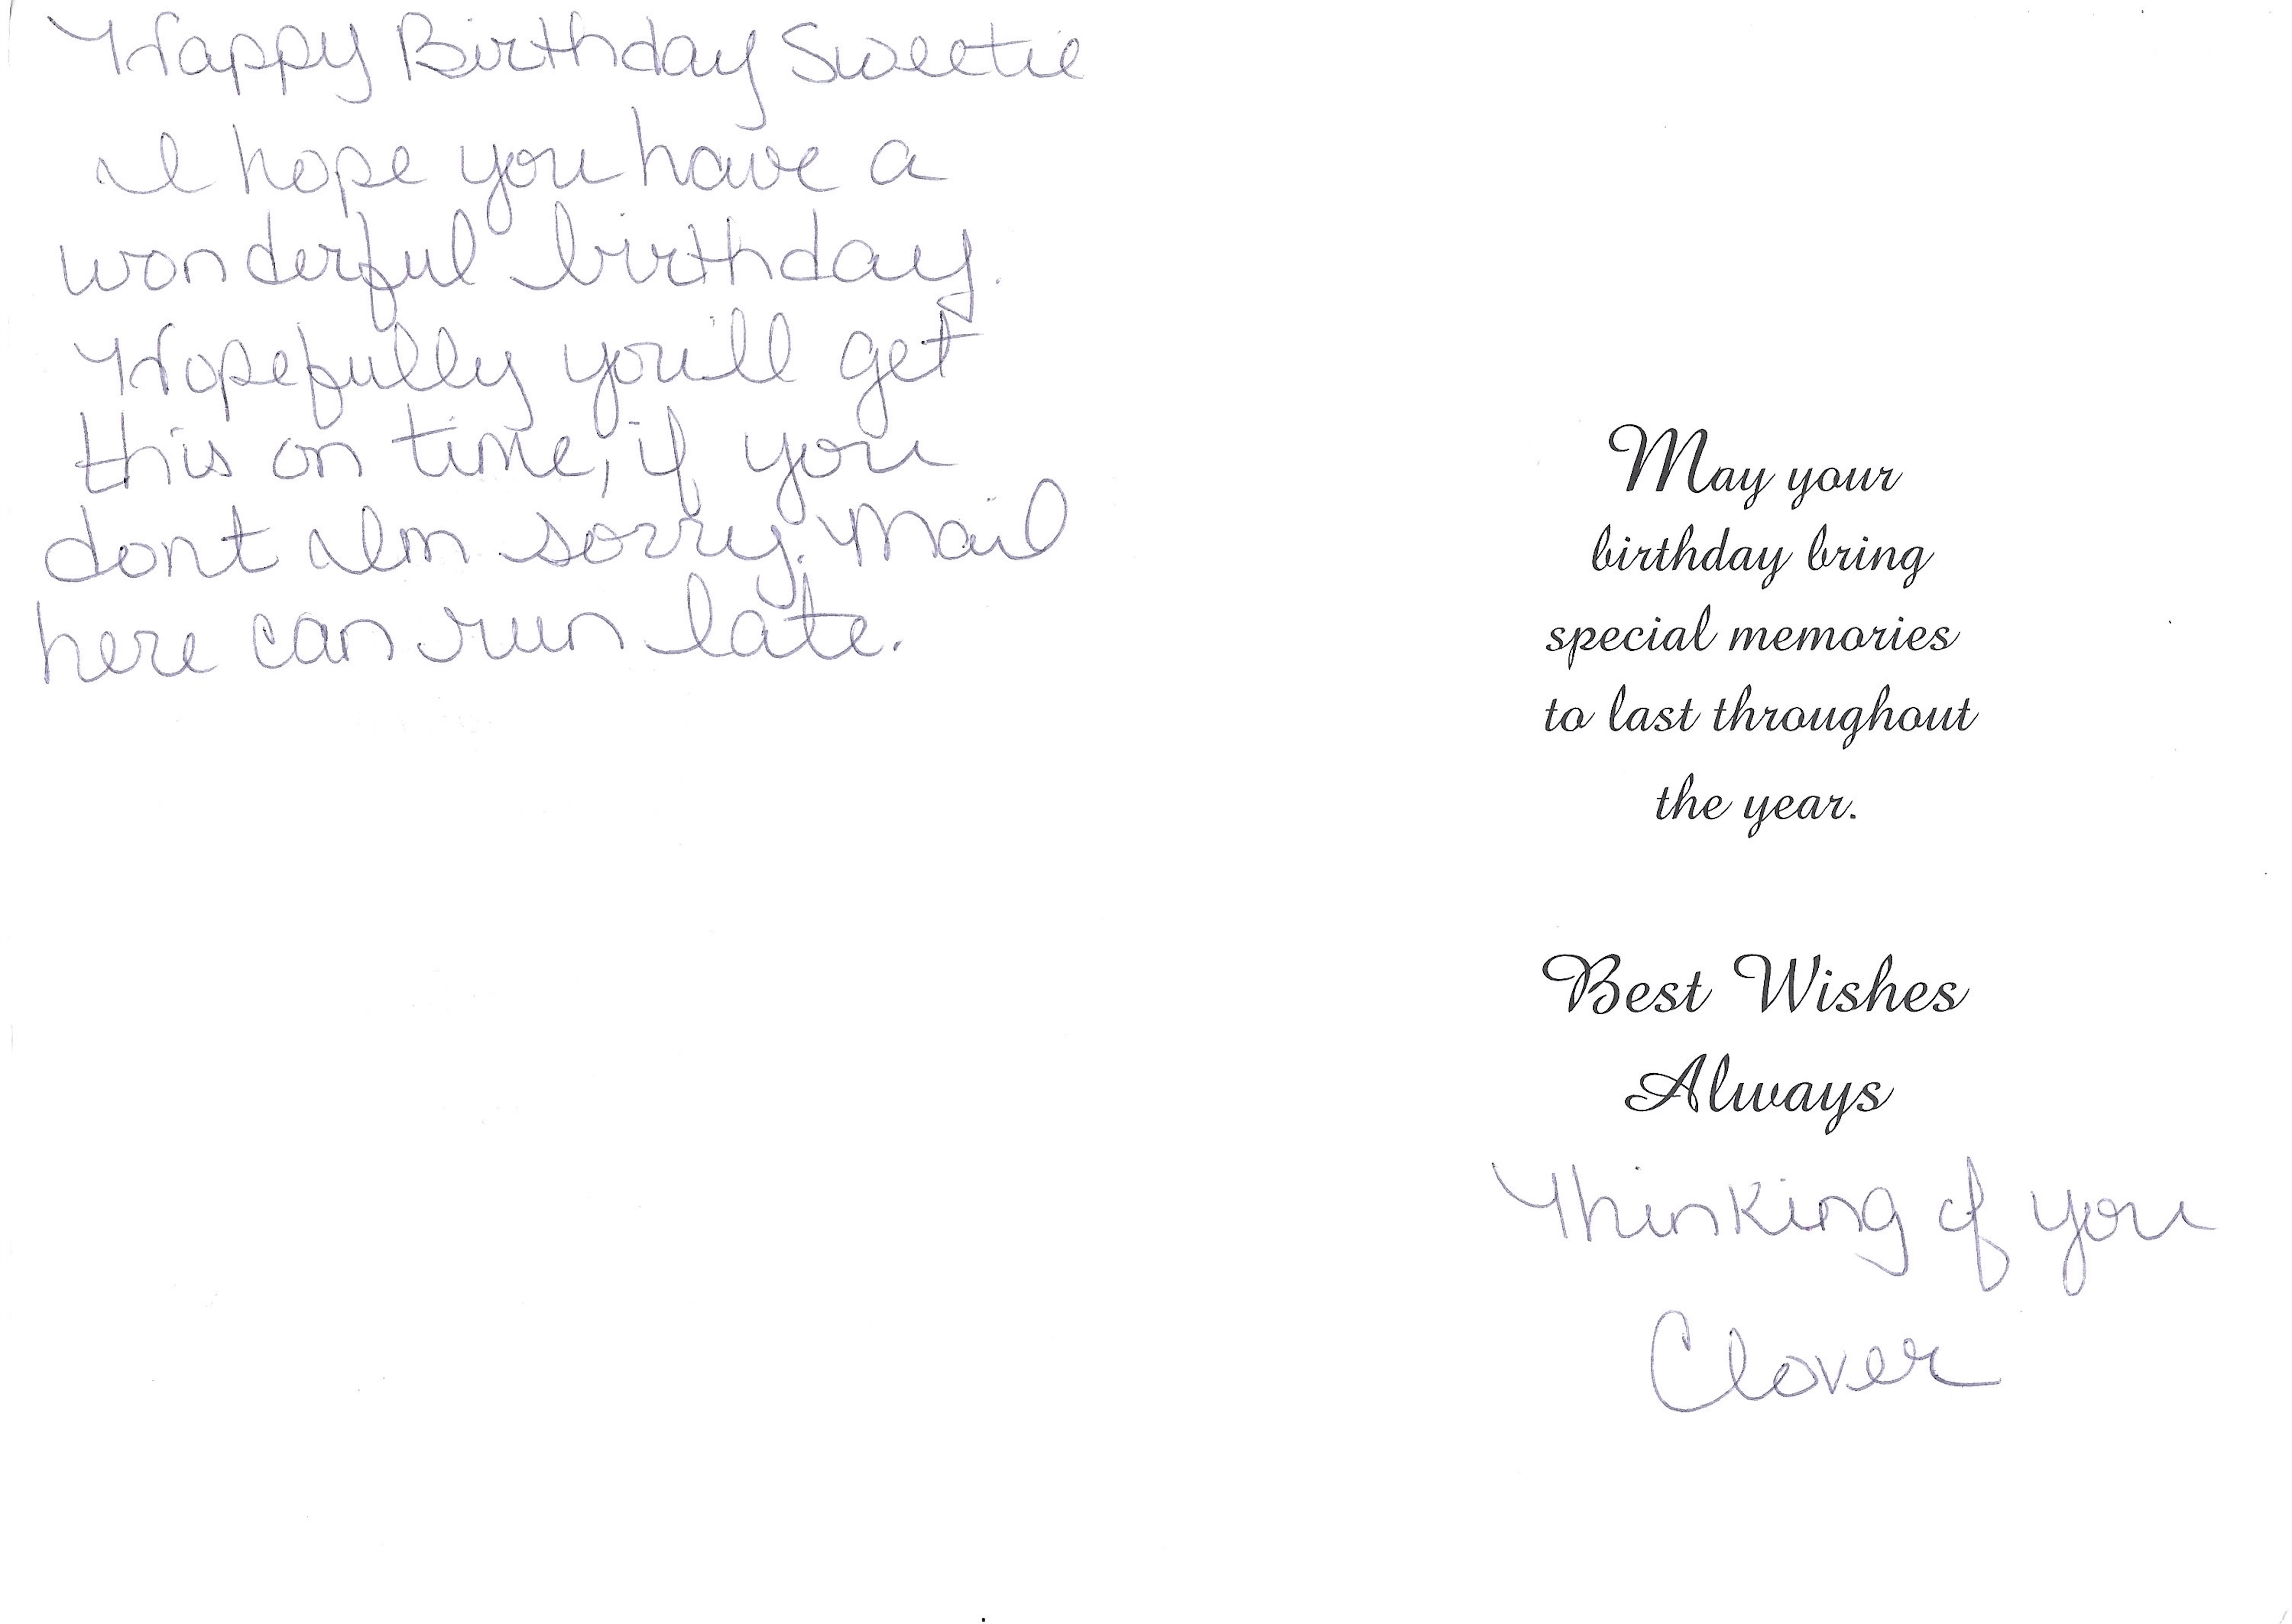 Happy Birthday Sweetie
I hope you have a
wonderful birthday.
Hopefully you'll get
this on time, if you
dont Im sorry. Mail
here can run late.
May your
birthday bring
special memories
to last throughout
the year.
Best Wishes
Always
Thinking of you
Clover